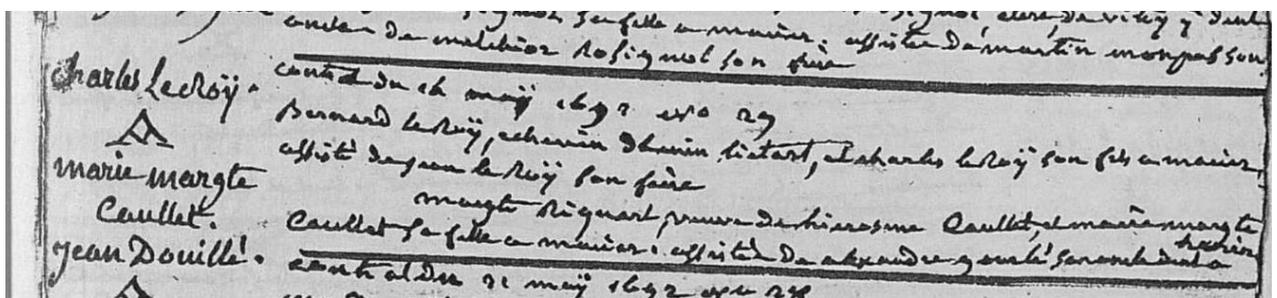 sa fille a marier. assistée de martin monpas son
oncle de melchior Rosignol son frère
Charles Le Roÿ.
marie margte
Caullet.
contrat du 16 maÿ 1692 n° 29
Bernard le Roÿ, echevin d'henin lietart, et charles le Roÿ son fils a marier
assisté de jean le Roÿ son frère
margte Riquart, veuve de hierosme Caullet, et marie margte
Caullet sa fille a marier. assistée de alexandre
jean Douillé.
contrat du 21 maÿ 1692 n° 28